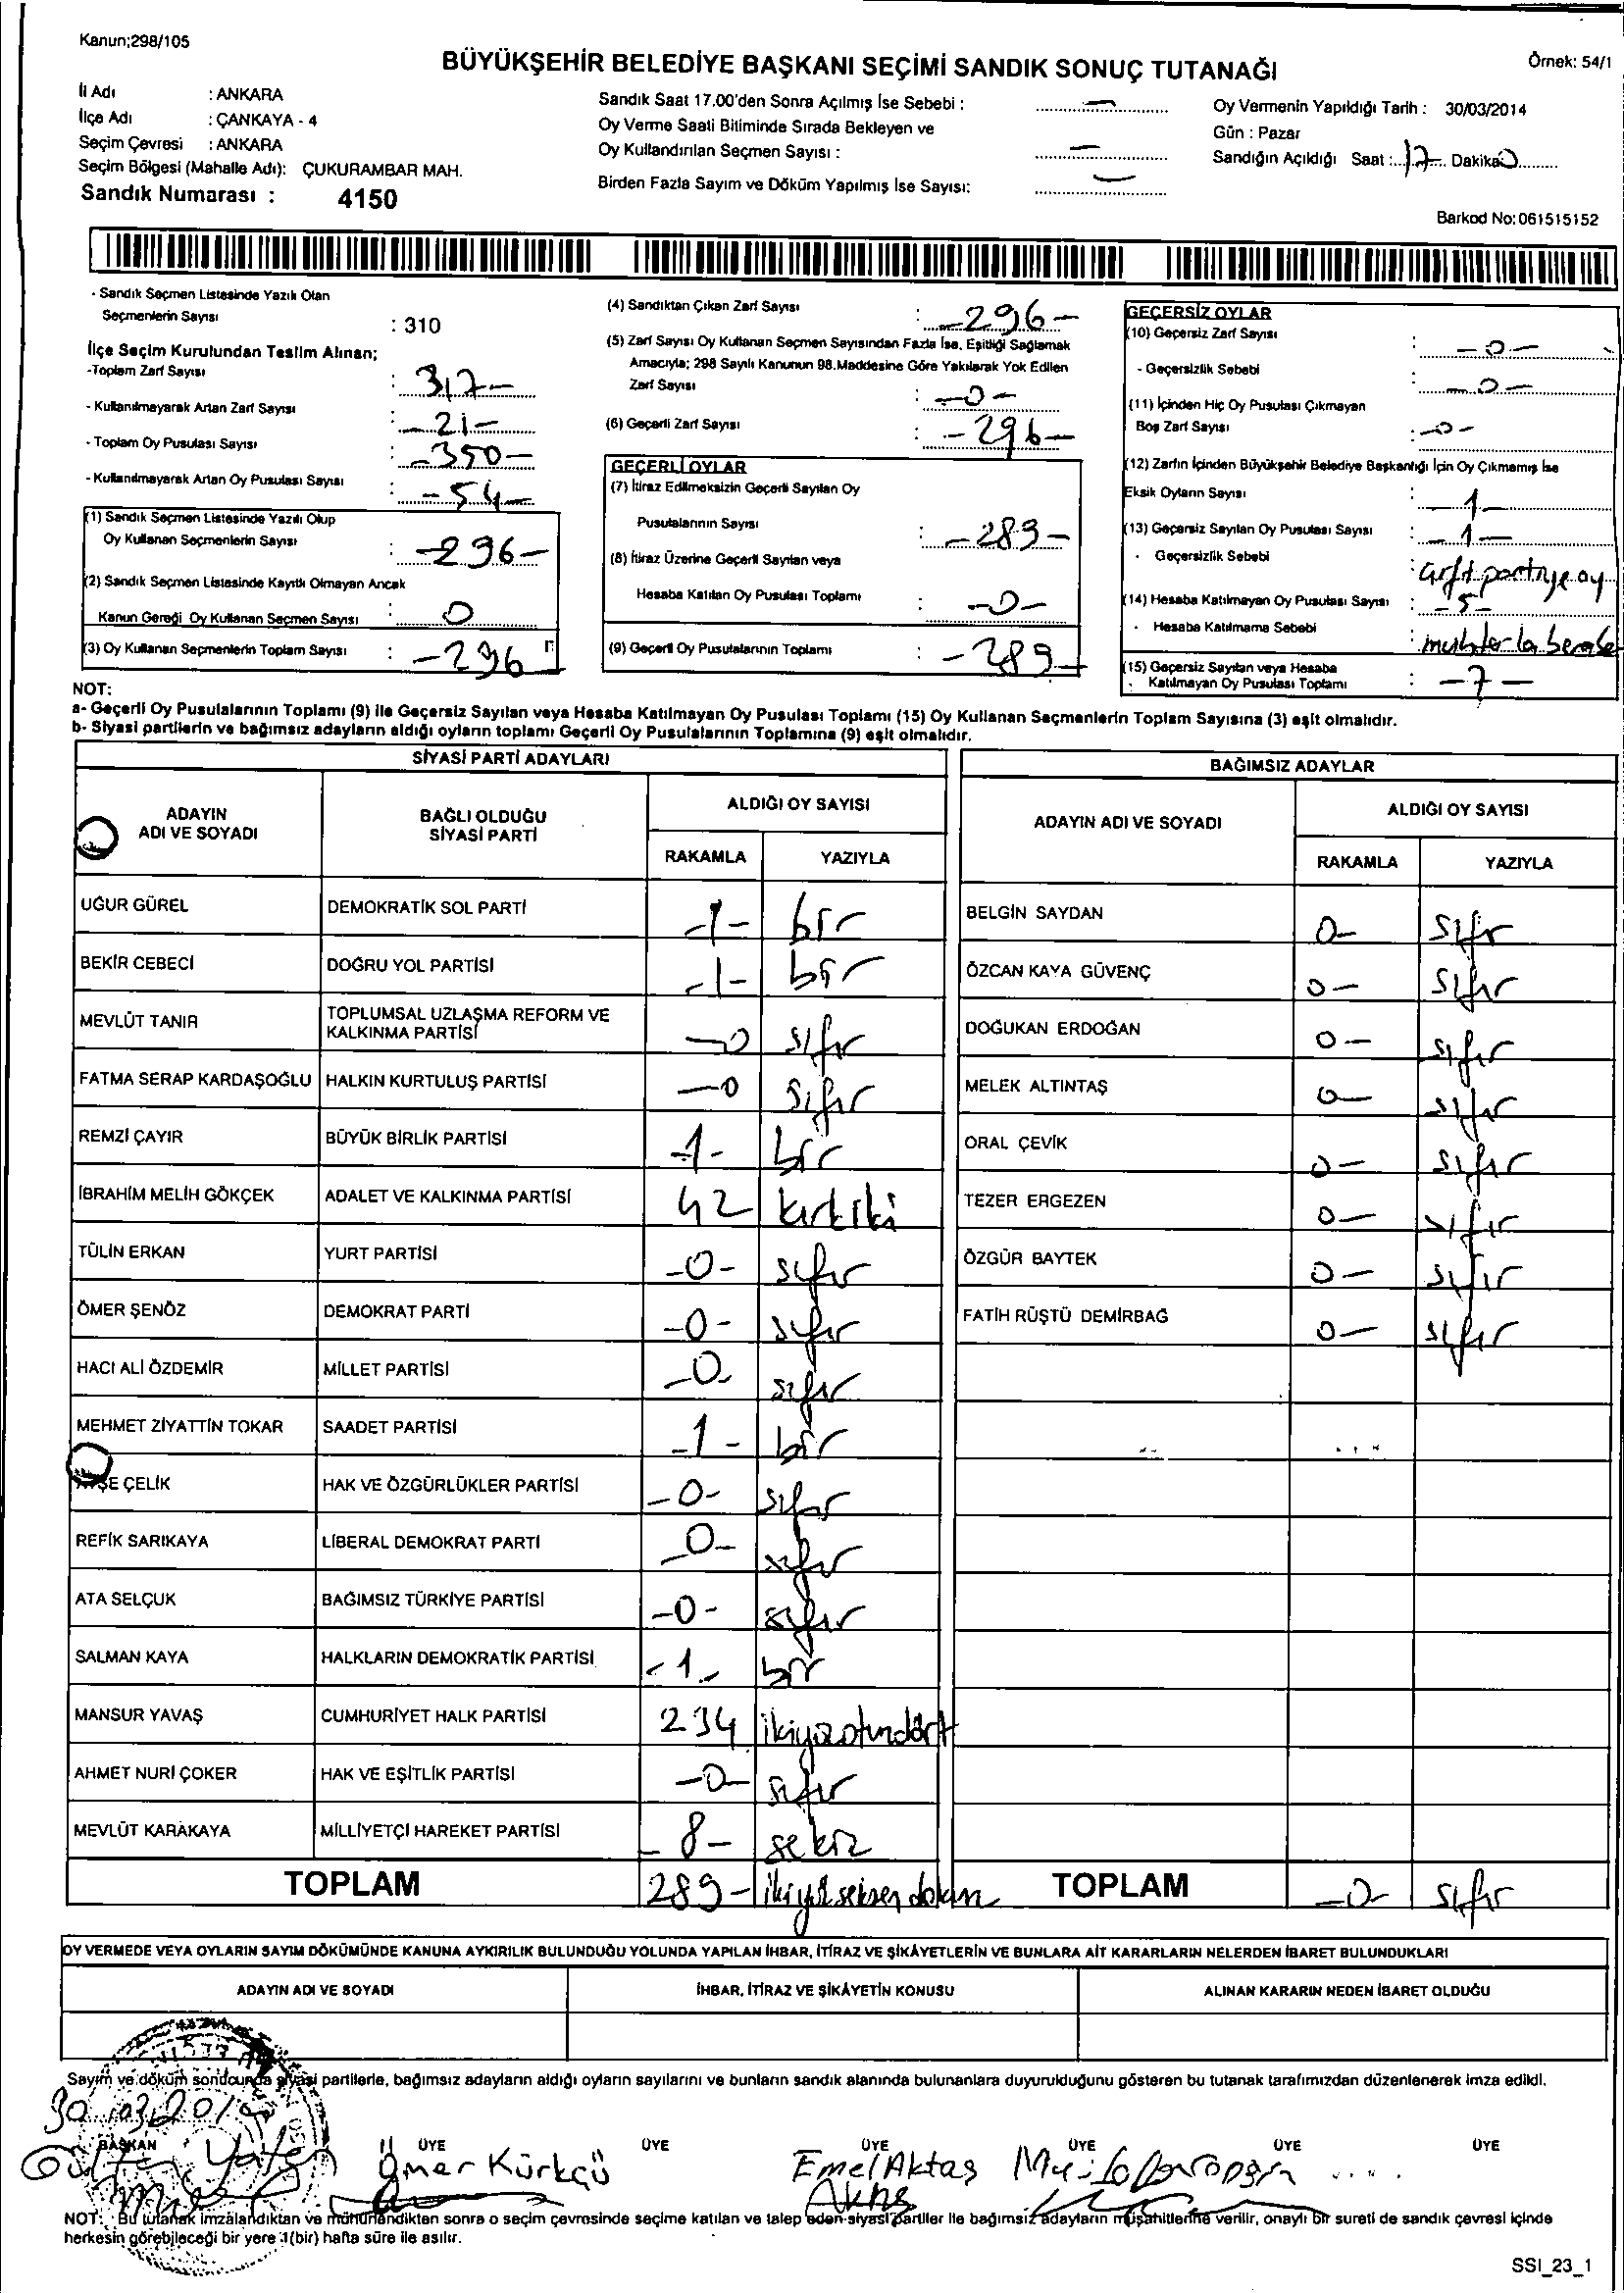 Kanun;298/105
BÜYÜKŞEHİR BELEDİYE BAŞKANI SEÇİMİ SANDIK SONUÇ TUTANAĞI
Örnek: 54/1
İl Adı : ANKARA
İlçe Adı : ÇANKAYA - 4
Seçim Çevresi : ANKARA
Seçim Bölgesi (Mahalle Adı): ÇUKURAMBAR MAH.
Sandık Numarası : 4150
Sandık Saat 17.00'den Sonra Açılmış İse Sebebi : —
Oy Verme Saati Bitiminde Sırada Bekleyen ve
Oy Kullandırılan Seçmen Sayısı : —
Birden Fazla Sayım ve Döküm Yapılmış İse Sayısı: —
Oy Vermenin Yapıldığı Tarih : 30/03/2014
Gün : Pazar
Sandığın Açıldığı Saat : 17 Dakika
Barkod No: 061515152
- Sandık Seçmen Listesinde Yazılı Olan
Seçmenlerin Sayısı : 310
İlçe Seçim Kurulundan Teslim Alınan;
-Toplam Zarf Sayısı : 317-
- Kullanılmayarak Artan Zarf Sayısı : -21-
- Toplam Oy Pusulası Sayısı : -350-
- Kullanılmayarak Artan Oy Pusulası Sayısı : -54-
(1) Sandık Seçmen Listesinde Yazılı Olup
Oy Kullanan Seçmenlerin Sayısı : -296-
(2) Sandık Seçmen Listesinde Kayıtlı Olmayan Ancak
Kanun Gereği Oy Kullanan Seçmen Sayısı : 0
(3) Oy Kullanan Seçmenlerin Toplam Sayısı : -296
(4) Sandıktan Çıkan Zarf Sayısı : -296-
(5) Zarf Sayısı Oy Kullanan Seçmen Sayısından Fazla İse, Eşitliği Sağlamak
Amacıyla; 298 Sayılı Kanunun 98.Maddesine Göre Yakılarak Yok Edilen
Zarf Sayısı : -0-
(6) Geçerli Zarf Sayısı : -296-
GEÇERLİ OYLAR
(7) İtiraz Edilmeksizin Geçerli Sayılan Oy
Pusulalarının Sayısı : -289-
(8) İtiraz Üzerine Geçerli Sayılan veya
Hesaba Katılan Oy Pusulası Toplamı : -0-
(9) Geçerli Oy Pusulalarının Toplamı : -289-
GEÇERSİZ OYLAR
(10) Geçersiz Zarf Sayısı : -0-
- Geçersizlik Sebebi : -0-
(11) İçinden Hiç Oy Pusulası Çıkmayan
Boş Zarf Sayısı : -0-
(12) Zarfın İçinden Büyükşehir Belediye Başkanlığı İçin Oy Çıkmamış İse
Eksik Oyların Sayısı : -1-
(13) Geçersiz Sayılan Oy Pusulası Sayısı : -1-
- Geçersizlik Sebebi : partiye oy
(14) Hesaba Katılmayan Oy Pusulası Sayısı : -5-
- Hesaba Katılmama Sebebi :
(15) Geçersiz Sayılan veya Hesaba
Katılmayan Oy Pusulası Toplamı : -7-
NOT:
a- Geçerli Oy Pusulalarının Toplamı (9) ile Geçersiz Sayılan veya Hesaba Katılmayan Oy Pusulası Toplamı (15) Oy Kullanan Seçmenlerin Toplam Sayısına (3) eşit olmalıdır.
b- Siyasi partilerin ve bağımsız adayların aldığı oyların toplamı Geçerli Oy Pusulalarının Toplamına (9) eşit olmalıdır.
SİYASİ PARTİ ADAYLARI
ADAYIN ADI VE SOYADI
BAĞLI OLDUĞU SİYASİ PARTİ
ALDIĞI OY SAYISI
RAKAMLA YAZIYLA
UĞUR GÜREL DEMOKRATİK SOL PARTİ -1- bir
BEKİR CEBECİ DOĞRU YOL PARTİSİ -1- bir
MEVLÜT TANIR TOPLUMSAL UZLAŞMA REFORM VE KALKINMA PARTİSİ -0 sıfır
FATMA SERAP KARDAŞOĞLU HALKIN KURTULUŞ PARTİSİ -0 sıfır
REMZİ ÇAYIR BÜYÜK BİRLİK PARTİSİ -1- bir
İBRAHİM MELİH GÖKÇEK ADALET VE KALKINMA PARTİSİ 42 kırkiki
TÜLİN ERKAN YURT PARTİSİ -0- sıfır
ÖMER ŞENÖZ DEMOKRAT PARTİ -0- sıfır
HACI ALİ ÖZDEMİR MİLLET PARTİSİ -0- sıfır
MEHMET ZİYATTİN TOKAR SAADET PARTİSİ -1- bir
ÇELİK HAK VE ÖZGÜRLÜKLER PARTİSİ -0- sıfır
REFİK SARIKAYA LİBERAL DEMOKRAT PARTİ -0- sıfır
ATA SELÇUK BAĞIMSIZ TÜRKİYE PARTİSİ -0- sıfır
SALMAN KAYA HALKLARIN DEMOKRATİK PARTİSİ -1- bir
MANSUR YAVAŞ CUMHURİYET HALK PARTİSİ 234 ikiyüzotuzdört
AHMET NURİ ÇOKER HAK VE EŞİTLİK PARTİSİ -0- sıfır
MEVLÜT KARAKAYA MİLLİYETÇİ HAREKET PARTİSİ -8- sekiz
TOPLAM 289- ikiyüz seksen dokuz
BAĞIMSIZ ADAYLAR
ADAYIN ADI VE SOYADI
ALDIĞI OY SAYISI
RAKAMLA YAZIYLA
BELGİN SAYDAN 0- sıfır
ÖZCAN KAYA GÜVENÇ 0- sıfır
DOĞUKAN ERDOĞAN 0- sıfır
MELEK ALTINTAŞ 0- sıfır
ORAL ÇEVİK 0- sıfır
TEZER ERGEZEN 0- sıfır
ÖZGÜR BAYTEK 0- sıfır
FATİH RÜŞTÜ DEMİRBAĞ 0- sıfır
TOPLAM -0- sıfır
OY VERMEDE VEYA OYLARIN SAYIM DÖKÜMÜNDE KANUNA AYKIRILIK BULUNDUĞU YOLUNDA YAPILAN İHBAR, İTİRAZ VE ŞİKÂYETLERİN VE BUNLARA AİT KARARLARIN NELERDEN İBARET BULUNDUKLARI
ADAYIN ADI VE SOYADI İHBAR, İTİRAZ VE ŞİKÂYETİN KONUSU ALINAN KARARIN NEDEN İBARET OLDUĞU
Sayım ve döküm sonucunda siyasi partilerle, bağımsız adayların aldığı oyların sayılarını ve bunların sandık alanında bulunanlara duyurulduğunu gösteren bu tutanak tarafımızdan düzenlenerek imza edildi.
30.03.2014
BAŞKAN ÜYE ÜYE ÜYE ÜYE ÜYE ÜYE
Ömer Kürkçü Emel Aktaş
Aktaş
NOT: Bu tutanak imzalandıktan ve mühürlendikten sonra o seçim çevresinde seçime katılan ve talep eden siyasi partiler ile bağımsız adayların müşahitlerine verilir, onaylı bir sureti de sandık çevresi içinde
herkesin görebileceği bir yere 1(bir) hafta süre ile asılır.
SSI_23_1